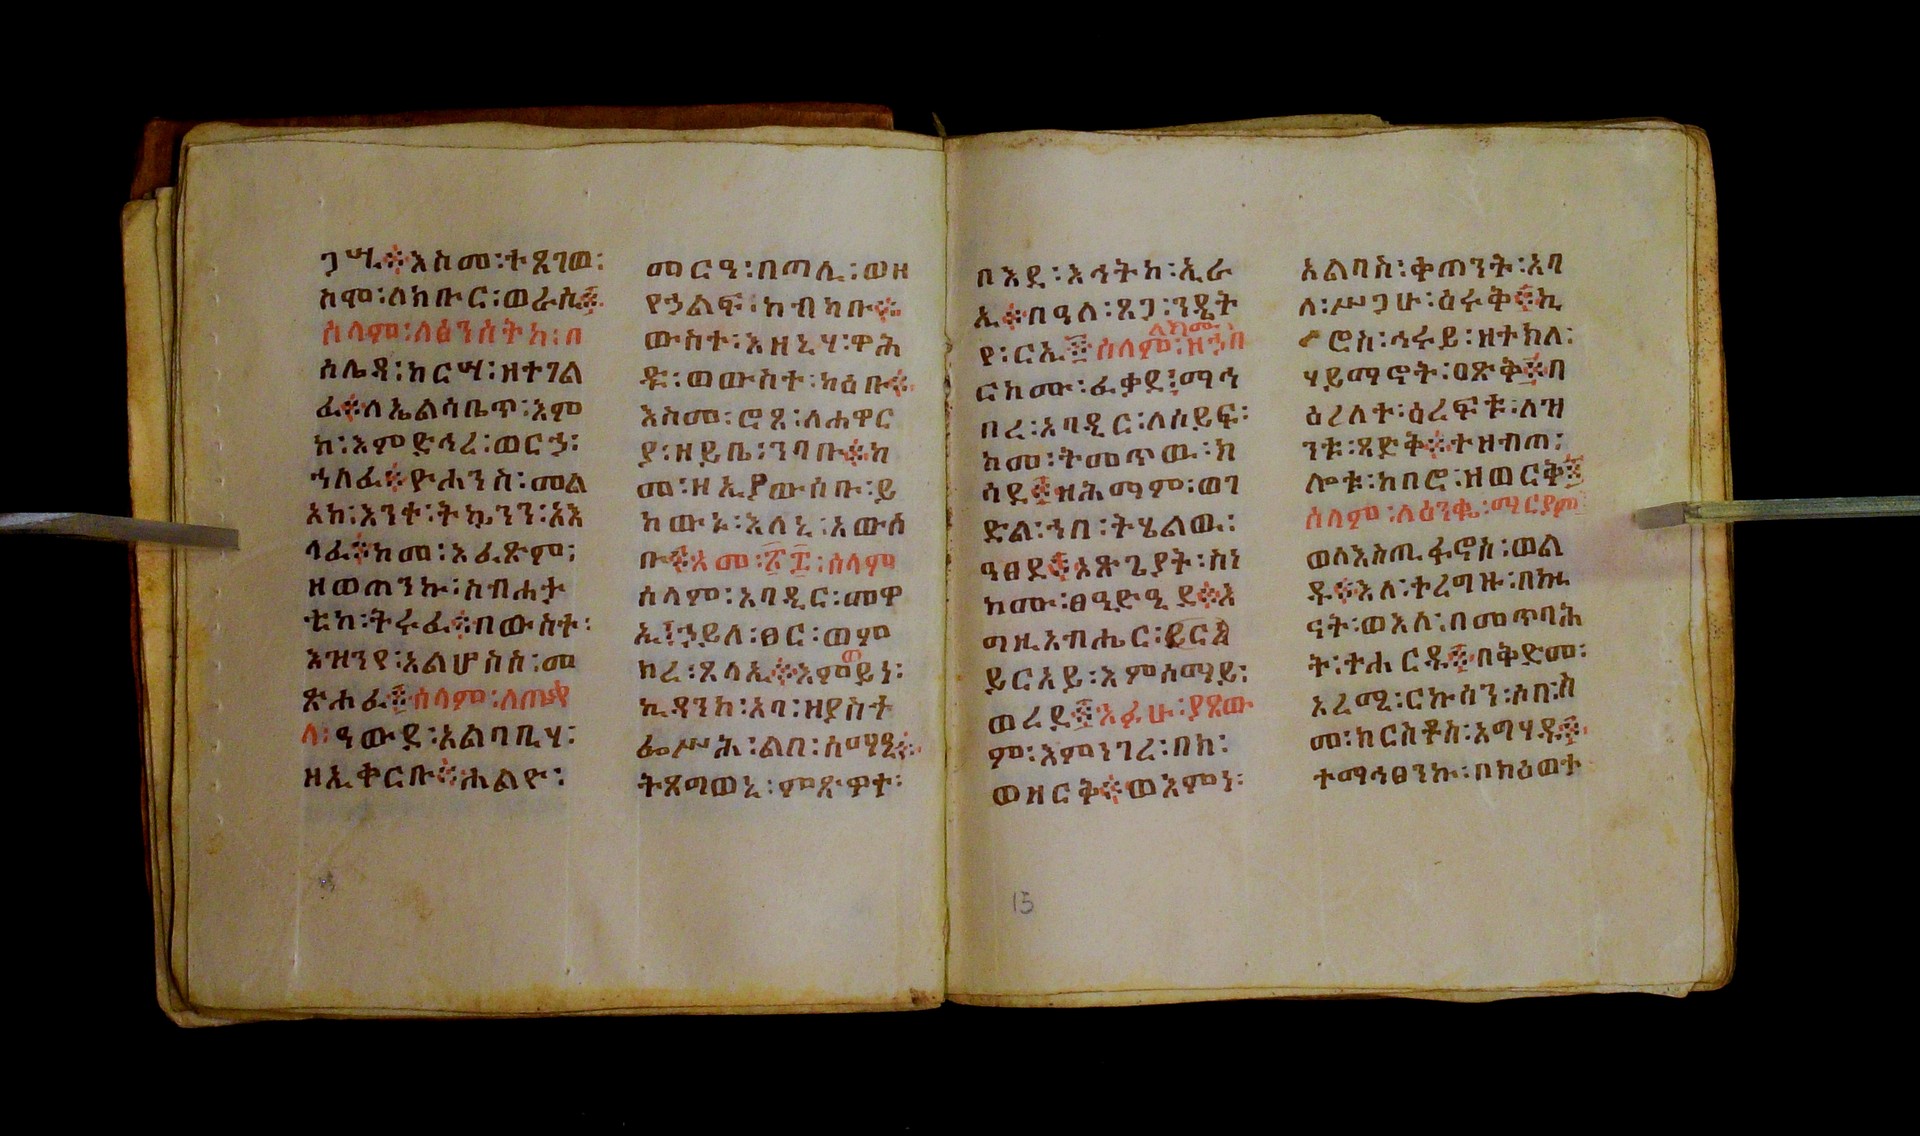 ጋሢ፨እስመ፡ተጸገወ፡
ስሞ፡ለክቡር፡ወራሲ፨
ሰላም፡ለፅንሰትከ፡በ
ሰሌዳ፡ከርሣ፡ዘተገል
ፈ፨ለኤልሳቤጥ፡እም
ከ፡እምድኅረ፡ወርኃ፡
ኀለፈ፨ዮሐንስ፡መል
አከ፡እንተ፡ትኴንን፡አእ
ላፈ፨ከመ፡እፈጽም፡
ዘወጠንኩ፡ስብሐታ
ቲከ፡ትሩፈ፨በውስተ፡
እዝንየ፡አልሆስስ፡መ
ጽሐፈ፨ሰላም፡ለጠቢ
ላ፡ዓውደ፡አልባቢሃ፡
ዘኢቀርቡ፨ሐልዮ፡
መርዓ፡በጣሊ፡ወዘ
የኃልፍ፡ከብካቡ፨
ውስተ፡እዘኒሃ፡ዋሕ
ዱ፡ወውስተ፡ካዕቡ፨
እስመ፡ሮጸ፡ለሐዋር
ያ፡ዘይቤ፡ንባቡ፨ከ
መ፡ዘኢያውሰቡ፡ይ
ከውኑ፡እለኒ፡አውሰ
ቡ፨አመ፡፳፰፡ሰላም
ሰላም፡አባዲር፡መዋ
ኢ፡ኃይለ፡ፀር፡ወሃም
ወ
ከረ፡ጸላኢ፨እምይነ፡
ኪዳንከ፡አባ፡ዘያስተ
ፌሥሕ፡ልበ፡ሰማዒ፨
ትጸግወኒ፡ምጽዋተ፡
በእደ፡እኅትከ፡ኢራ
ኢ፨በዓለ፡ጸጋ፡ንዴት
ለክሙ፡
የ፡ርኢ፨ሰላም፡ዘኃበ
ርክሙ፡ፈቃደ፡ማኅ
በረ፡አባዲር፡ለሰይፍ፡
ከመ፡ትመጥዉ፡ክ
ሳደ፨ዝሕማም፡ወገ
ድል፡ኀበ፡ትሄልዉ፡
ዓፀደ፨አጽጌያት፡ስነ
ክሙ፡ፀዓዮዒደ፨እ
ግዚአብሔር፡ይርአ
ይርአይ፡እምሰማይ፡
ወረደ፨አፉሁ፡ያጸው
ም፡እምንገረ፡በክ፡
ወዘርቅ፨ወእምነ፡
አልባስ፡ቀጠንት፡አባ
ለ፡ሥጋሁ፡ዕሩቅ፨ኪ
ሮስ፡ኅሩይ፡ዘተክለ፡
ሃይማኖት፡ዐጽቅ፨በ
ዕረለተ፡ዕረፍቱ፡ለዝ
ንቱ፡ጻድቅ፨ተዘብጠ፡
ሎቱ፡ከበሮ፡ዘወርቅ፨
ሰላም፡ለዕንቈ፡ማርያም
ወለእስጢፋኖስ፡ወል
ዱ፨እለ፡ተረግዙ፡በኩ
ናት፡ወእለ፡በመጥባሕ
ት፡ተሐርዱ፨በቅድመ፡
አረሚ፡ርኩሰን፡ሶበ፡ስ
መ፡ክርስቶስ፡አግሃዱ፨
ተማኅፀንኩ፡በክዕወተ
15